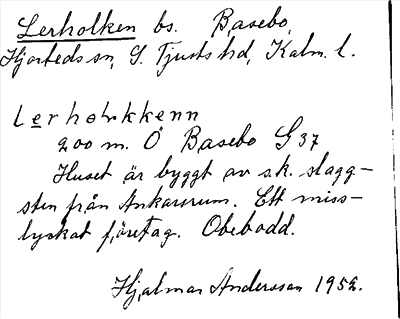 Lerholken bs. Basebo,
Hjorteds sn, S. Tjusts hd, Kalm. l.
200 m. Ö Basebo G 37
Huset är byggt av s.k. slagg-
sten från Ankarsrum. Ett miss-
lyckat företag. Obebodd.
Hjalmar Andersson 1952.